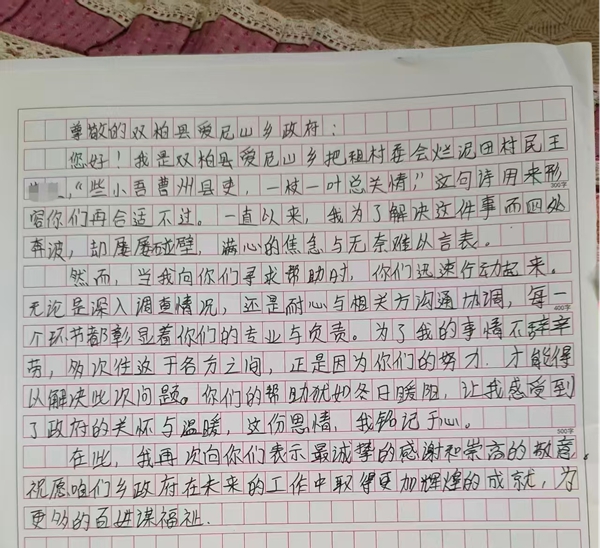 尊敬的双柏县爱尼山乡政府：
您好！我是双柏县爱尼山乡把租村委会烂泥田村民王
，“些小吾曹州县吏，一枝一叶总关情，”这句诗用来形
300字
容你们再合适不过。一直以来，我为了解决这件事而四处
奔波，却屡屡碰壁，满心的焦急与无奈难以言表。
然而，当我向你们寻求帮助时，你们迅速行动起来。
无论是深入调查情况，还是耐心与相关方沟通协调，每一
400字
个环节都彰显着你们的专业与负责。为了我的事情不辞辛
劳，多次往返于各方之间，正是因为你们的努力，才能得
以解决此次问题。你们的帮助犹如冬日暖阳，让我感受到
了政府的关怀与温暖，这份恩情，我铭记于心。
500字
在此，我再次向你们表示最诚挚的感谢和崇高的敬意。
祝愿咱们乡政府在未来的工作中取得更加辉煌的成就，为
更多的百姓谋福祉.